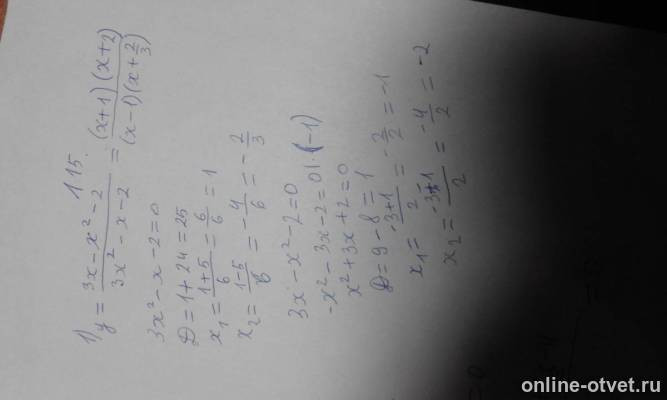 1.15.
1) y = (3x - x² - 2)/(3x² - x - 2) = ((x+1)(x+2))/((x-1)(x+2/3))
3x² - x - 2 = 0
D = 1 + 24 = 25
x₁ = (1+5)/6 = 6/6 = 1
x₂ = (1-5)/6 = -4/6 = -2/3
3x - x² - 2 = 0
-x² - 3x - 2 = 0 |·(-1)
x² + 3x + 2 = 0
D = 9 - 8 = 1
x₁ = (-3+1)/2 = -2/2 = -1
x₂ = (-3-1)/2 = -4/2 = -2
online-otvet.ru